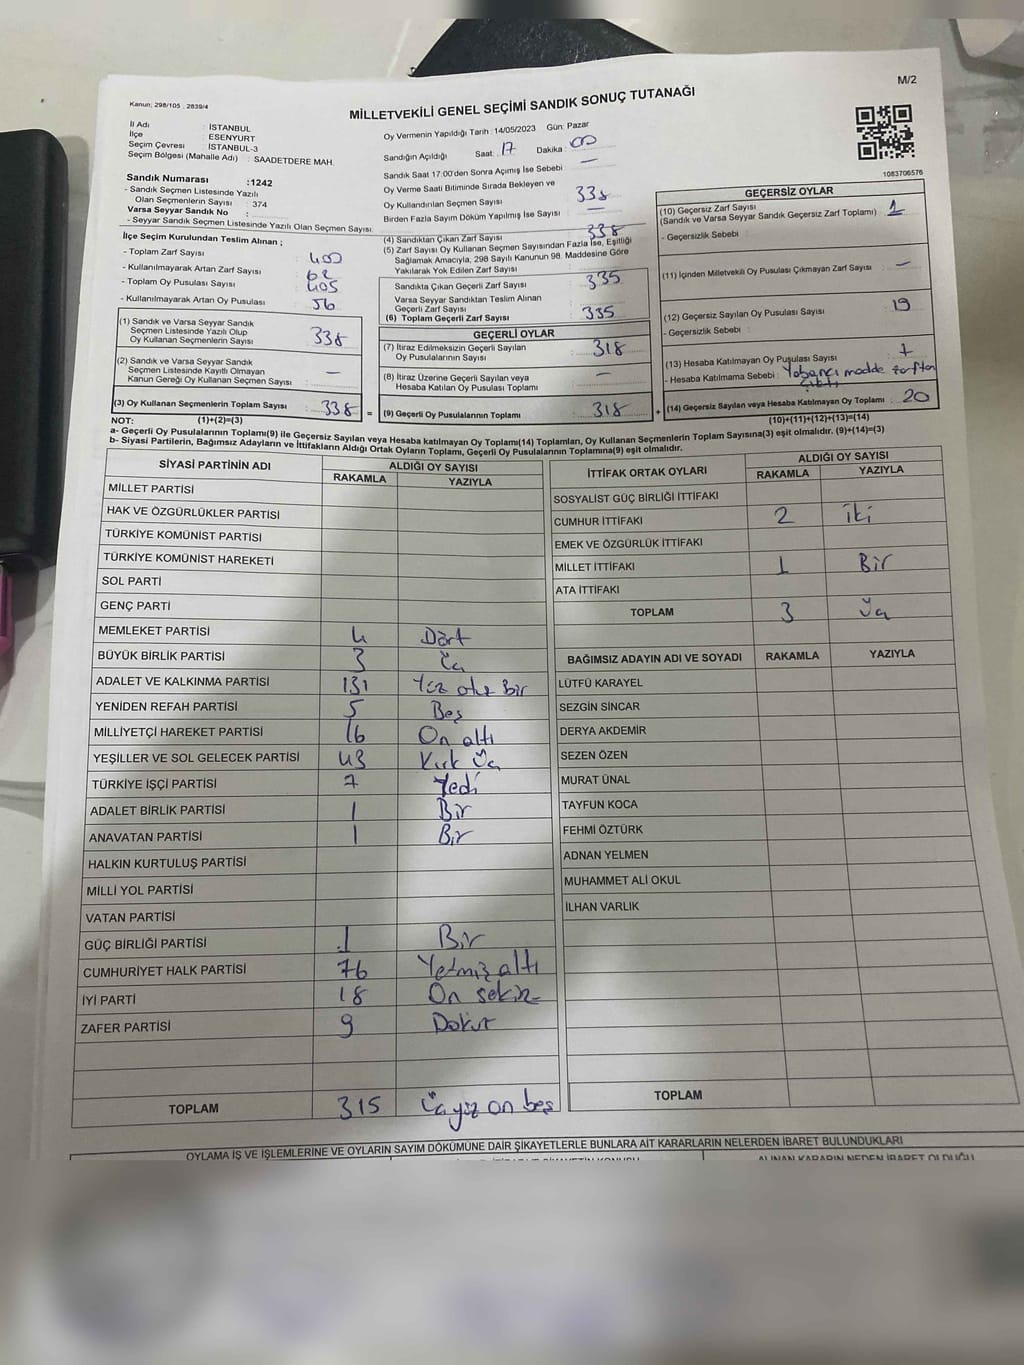 M/2
Kanun; 298/105 , 2839/4
MİLLETVEKİLİ GENEL SEÇİMİ SANDIK SONUÇ TUTANAĞI
İl Adı : İSTANBUL
İlçe : ESENYURT
Seçim Çevresi : İSTANBUL-3
Seçim Bölgesi (Mahalle Adı) : SAADETDERE MAH.
Sandık Numarası :1242
- Sandık Seçmen Listesinde Yazılı
Olan Seçmenlerin Sayısı : 374
Varsa Seyyar Sandık No :
- Seyyar Sandık Seçmen Listesinde Yazılı Olan Seçmen Sayısı:
Oy Vermenin Yapıldığı Tarih :14/05/2023 Gün: Pazar
Sandığın Açıldığı Saat: 17 Dakika: 00
Sandık Saat 17:00'den Sonra Açımış İse Sebebi : —
Oy Verme Saati Bitiminde Sırada Bekleyen ve
Oy Kullandırılan Seçmen Sayısı : 338
Birden Fazla Sayım Döküm Yapılmış İse Sayısı : —
1083706576
İlçe Seçim Kurulundan Teslim Alınan ;
- Toplam Zarf Sayısı : 400
- Kullanılmayarak Artan Zarf Sayısı : 62
- Toplam Oy Pusulası Sayısı : 405
- Kullanılmayarak Artan Oy Pusulası : 56
(1) Sandık ve Varsa Seyyar Sandık
Seçmen Listesinde Yazılı Olup
Oy Kullanan Seçmenlerin Sayısı : 338
(2) Sandık ve Varsa Seyyar Sandık
Seçmen Listesinde Kayıtlı Olmayan
Kanun Gereği Oy Kullanan Seçmen Sayısı : —
(3) Oy Kullanan Seçmenlerin Toplam Sayısı : 338
(1)+(2)=(3)
(4) Sandıktan Çıkan Zarf Sayısı : 338
(5) Zarf Sayısı Oy Kullanan Seçmen Sayısından Fazla İse, Eşitliği
Sağlamak Amacıyla, 298 Sayılı Kanunun 98. Maddesine Göre
Yakılarak Yok Edilen Zarf Sayısı :
Sandıkta Çıkan Geçerli Zarf Sayısı : 335
Varsa Seyyar Sandıktan Teslim Alınan
Geçerli Zarf Sayısı :
(6) Toplam Geçerli Zarf Sayısı : 335
GEÇERLİ OYLAR
(7) İtiraz Edilmeksizin Geçerli Sayılan
Oy Pusulalarının Sayısı : 318
(8) İtiraz Üzerine Geçerli Sayılan veya
Hesaba Katılan Oy Pusulası Toplamı : —
= (9) Geçerli Oy Pusulalarının Toplamı : 318
GEÇERSİZ OYLAR
(10) Geçersiz Zarf Sayısı
(Sandık ve Varsa Seyyar Sandık Geçersiz Zarf Toplamı) : 1
- Geçersizlik Sebebi :
(11) İçinden Milletvekili Oy Pusulası Çıkmayan Zarf Sayısı : —
(12) Geçersiz Sayılan Oy Pusulası Sayısı : 19
- Geçersizlik Sebebi :
(13) Hesaba Katılmayan Oy Pusulası Sayısı :
- Hesaba Katılmama Sebebi : Yabancı madde zarftan
çıktı
+ (14) Geçersiz Sayılan veya Hesaba Katılmayan Oy Toplamı : 20
(10)+(11)+(12)+(13)=(14)
NOT:
a- Geçerli Oy Pusulası Toplamı(9) ile Geçersiz Sayılan veya Hesaba katılmayan Oy Toplamı(14) Toplamları, Oy Kullanan Seçmenlerin Toplam Sayısına(3) eşit olmalıdır. (9)+(14)=(3)
b- Siyasi Partilerin, Bağımsız Adayların ve İttifakların Aldığı Ortak Oyların Toplamı, Geçerli Oy Pusulalarının Toplamına(9) eşit olmalıdır.
SİYASİ PARTİNİN ADI ALDIĞI OY SAYISI
RAKAMLA YAZIYLA
MİLLET PARTİSİ
HAK VE ÖZGÜRLÜKLER PARTİSİ
TÜRKİYE KOMÜNİST PARTİSİ
TÜRKİYE KOMÜNİST HAREKETİ
SOL PARTİ
GENÇ PARTİ
MEMLEKET PARTİSİ 4 Dört
BÜYÜK BİRLİK PARTİSİ 3 Üç
ADALET VE KALKINMA PARTİSİ 131 Yüz otuz Bir
YENİDEN REFAH PARTİSİ 5 Beş
MİLLİYETÇİ HAREKET PARTİSİ 16 On altı
YEŞİLLER VE SOL GELECEK PARTİSİ 43 Kırk Üç
TÜRKİYE İŞÇİ PARTİSİ 7 Yedi
ADALET BİRLİK PARTİSİ 1 Bir
ANAVATAN PARTİSİ 1 Bir
HALKIN KURTULUŞ PARTİSİ
MİLLİ YOL PARTİSİ
VATAN PARTİSİ
GÜÇ BİRLİĞİ PARTİSİ 1 Bir
CUMHURİYET HALK PARTİSİ 76 Yetmiş altı
İYİ PARTİ 18 On sekiz
ZAFER PARTİSİ 9 Dokuz
TOPLAM 315 Üçyüz on beş
İTTİFAK ORTAK OYLARI ALDIĞI OY SAYISI
RAKAMLA YAZIYLA
SOSYALİST GÜÇ BİRLİĞİ İTTİFAKI
CUMHUR İTTİFAKI 2 İki
EMEK VE ÖZGÜRLÜK İTTİFAKI
MİLLET İTTİFAKI 1 Bir
ATA İTTİFAKI
TOPLAM 3 Üç
BAĞIMSIZ ADAYIN ADI VE SOYADI RAKAMLA YAZIYLA
LÜTFÜ KARAYEL
SEZGİN SİNCAR
DERYA AKDEMİR
SEZEN ÖZEN
MURAT ÜNAL
TAYFUN KOCA
FEHMİ ÖZTÜRK
ADNAN YELMEN
MUHAMMET ALİ OKUL
İLHAN VARLIK
TOPLAM
OYLAMA İŞ VE İŞLEMLERİNE VE OYLARIN SAYIM DÖKÜMÜNE DAİR ŞİKAYETLERLE BUNLARA AİT KARARLARIN NELERDEN İBARET BULUNDUKLARI